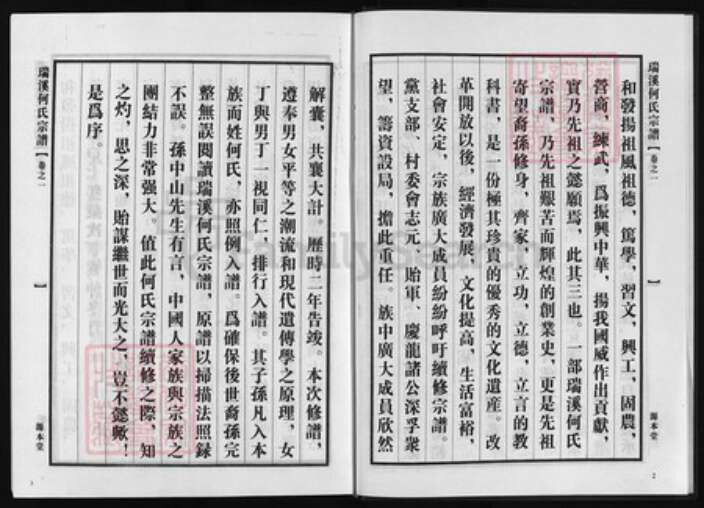 瑞溪何氏宗譜【卷之一
】
源本堂
2
和發揚祖風祖德，篤學，習文，興工，固農，
營商，練武，爲振興中華，揚我國威作出貢獻，
實乃先祖之懿願焉，此其三也。一部瑞溪何氏
宗譜，乃先祖艱苦而輝煌的創業史，更是先祖
寄望裔孫修身，齊家，立功，立德，立言的教
科書，是一份極其珍貴的優秀的文化遺産。改
革開放以後，經濟發展，文化提高，生活富裕，
社會安定，宗族廣大成員紛紛呼吁續修宗譜。
黨支部、村委會志元、貽軍、慶龍諸公深孚衆
望，籌資設局，擔此重任。族中廣大成員欣然
解囊，共襄大計。歷時二年告竣。本次修譜，
遵奉男女平等之潮流和現代遺傳學之原理，女
丁與男丁一視同仁，排行入譜。其子孫凡入本
族而姓何氏，亦照例入譜。爲確保後世裔孫完
整無誤閱讀瑞溪何氏宗譜，原譜以掃描法照録
不誤。孫中山先生有言，中國人家族與宗族之
團結力非常强大。值此何氏宗譜續修之際，知
之灼，思之深，貽謀繼世而光大之，豈不懿歟！
是爲序。
瑞溪何氏宗譜【卷之一
】
源本堂
3
FamilySearch